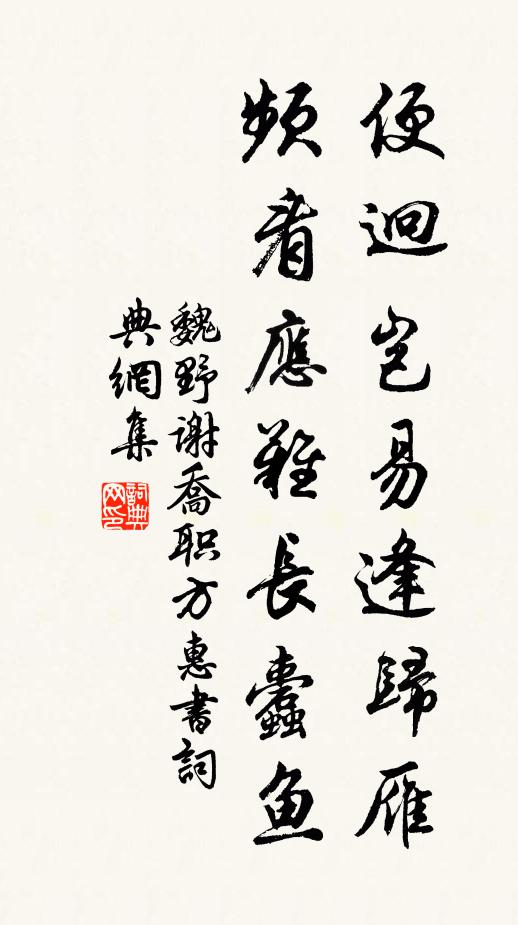 便迴豈易逢歸雁
頻看應難長蠹鱼
魏野謝喬职方惠書詞
典網集
詞典
网印